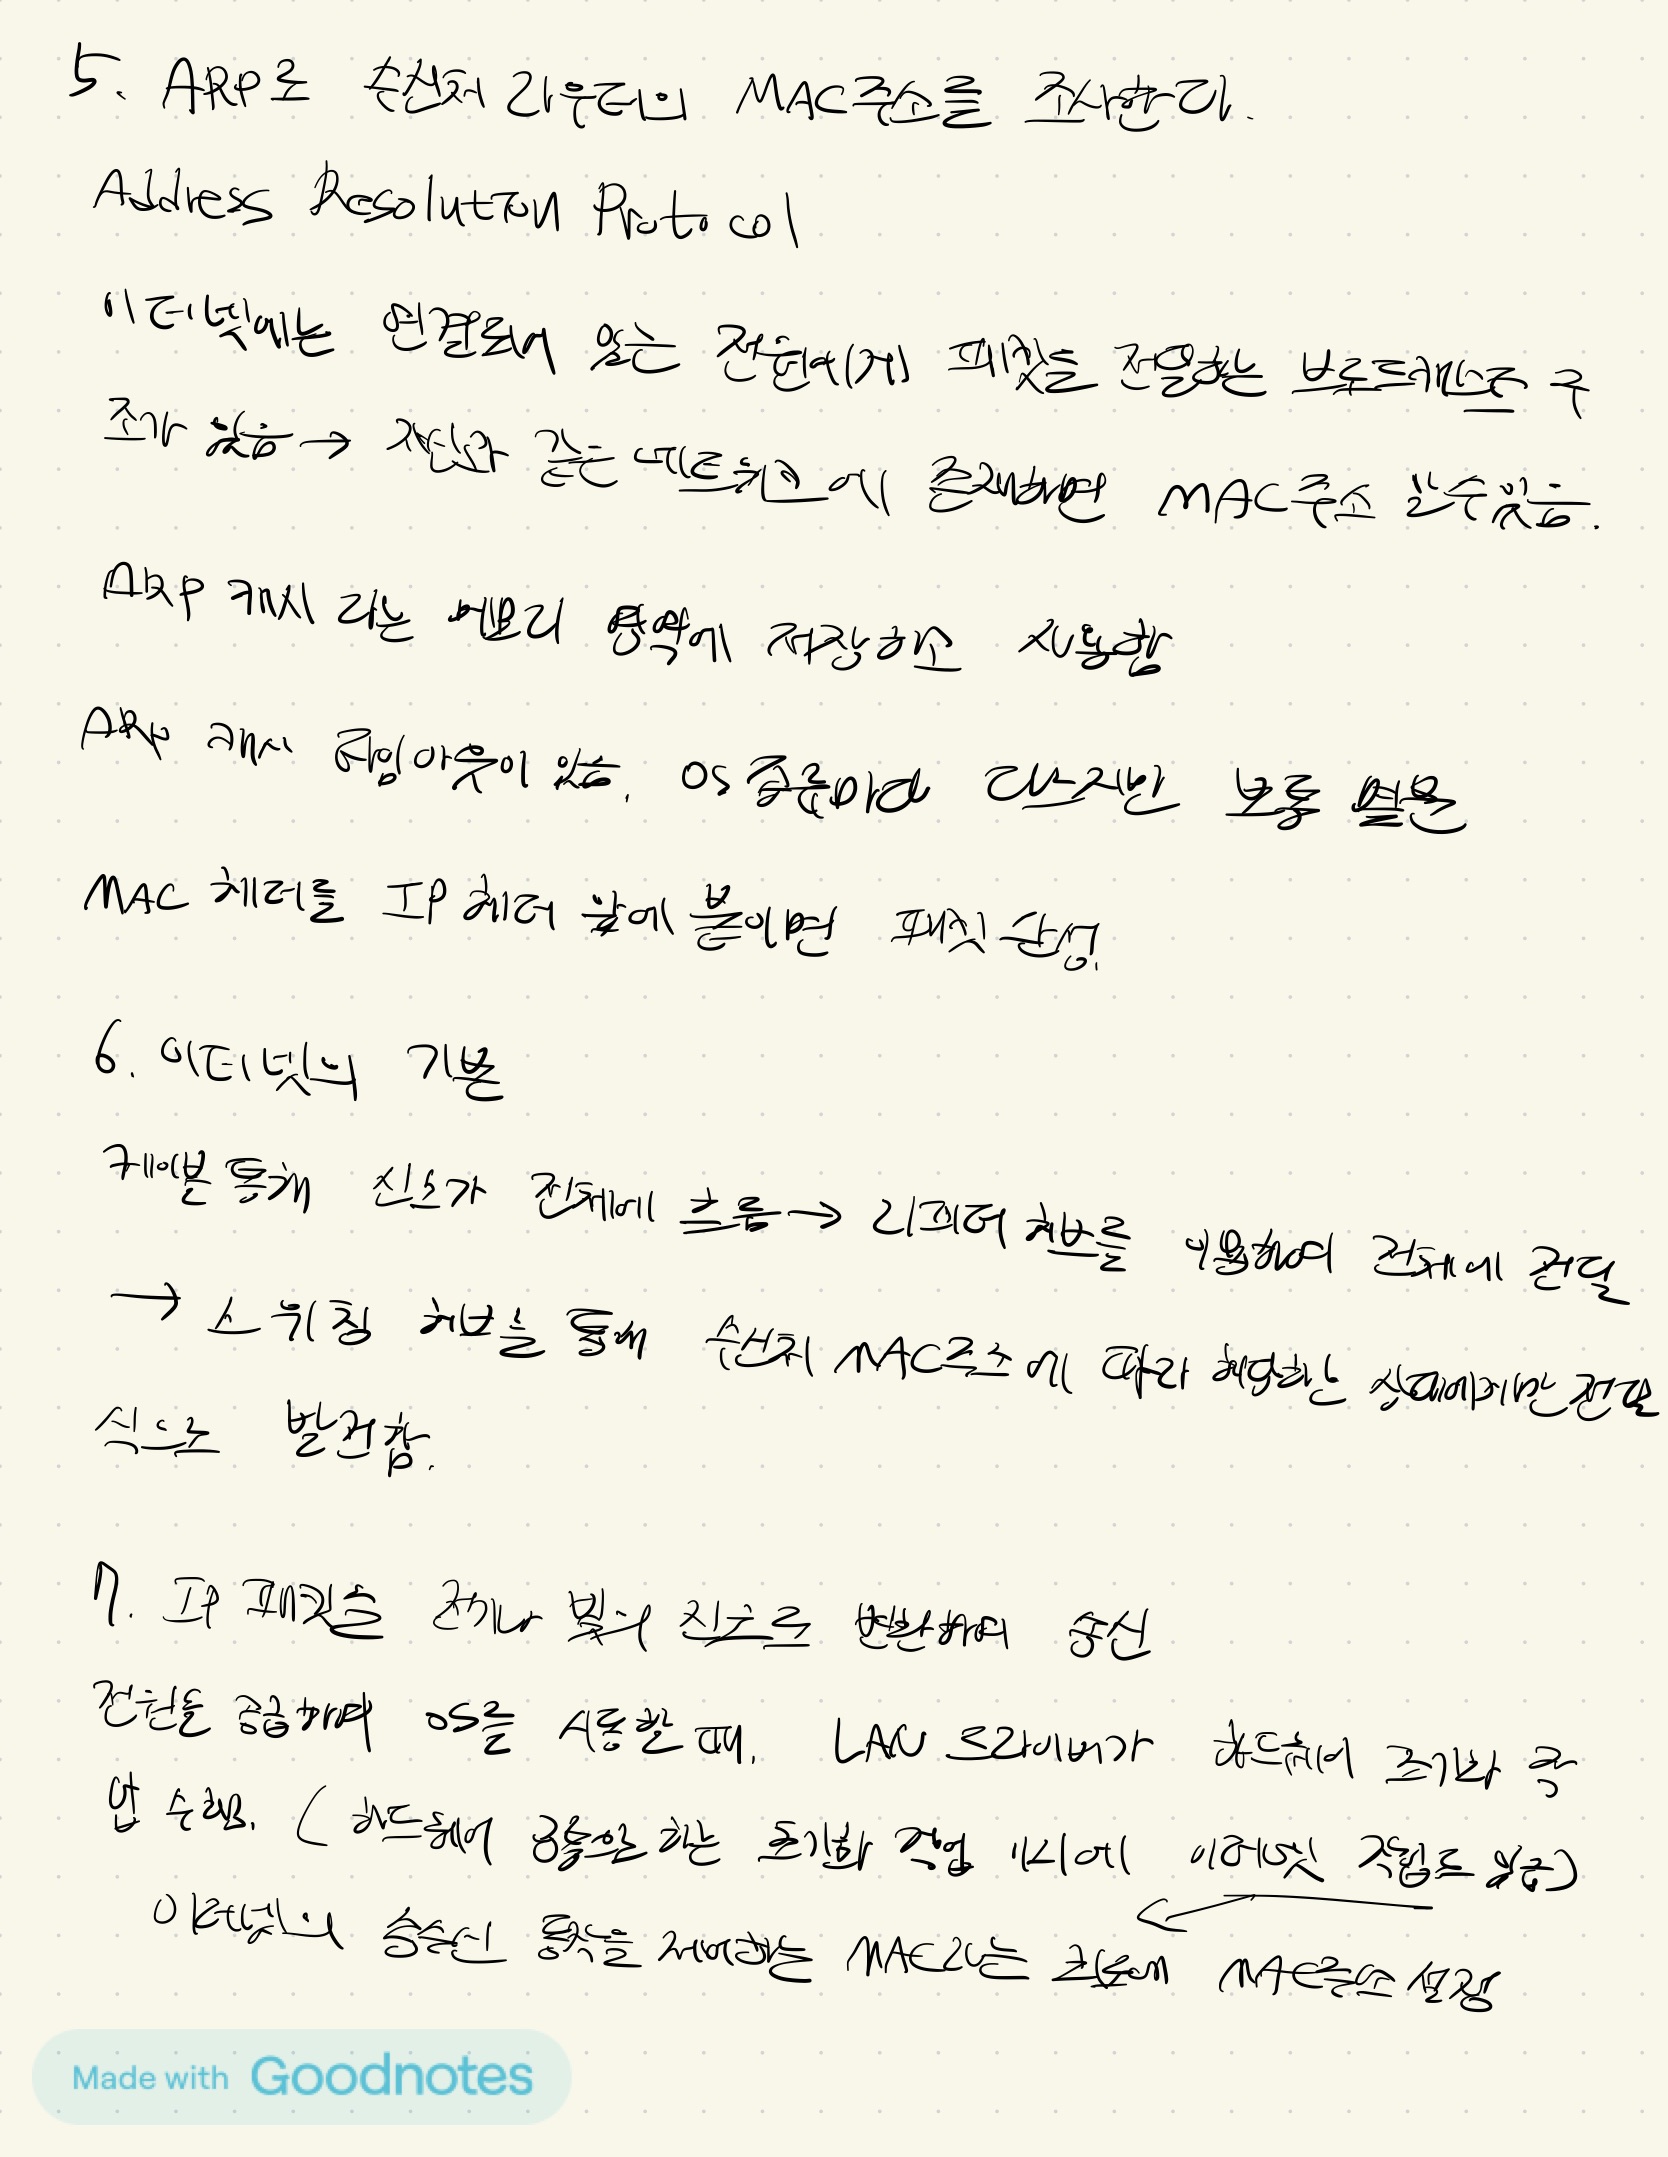 5. ARP로 수신처 라우터의 MAC주소를 조사한다.
Address Resolution Protocol
이더넷에는 연결되어 있는 전원에게 패킷을 전달하는 브로드캐스트 구
조가 있음 → 자신과 같은 네트워크에 존재하면 MAC주소 알 수 있음.
ARP 캐시 라는 메모리 영역에 저장하고 사용함
ARP 캐시 타임아웃이 있음. OS 종류마다 다르지만 보통 몇분
MAC 헤더를 IP 헤더 앞에 붙이면 패킷 완성.
6. 이더넷의 기본
케이블 통해 신호가 전체에 흐름 → 리피터 허브를 이용하여 전체에 전달
→ 스위칭 허브를 통해 수신처 MAC주소에 따라 해당하는 상대에게만 전달
식으로 발전함.
7. IP 패킷을 전기나 빛의 신호로 변환하여 송신
전원을 공급하여 OS를 시동할 때, LAN 드라이버가 하드웨어 초기화 작
업 수행. ( 하드웨어 공통으로 하는 초기화 작업 이외에 이더넷 작업도 있음)
이더넷의 송수신 동작을 제어하는 MAC라는 회로에 MAC주소 설정
Made with Goodnotes